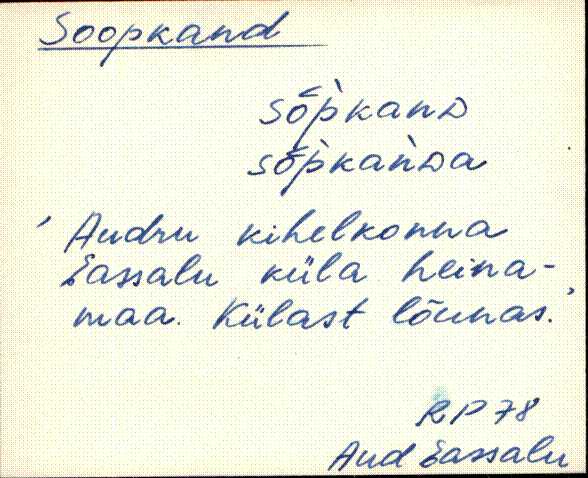 Soopkand
sṓp̀kanᴅ
sṓp̀kaǹᴅa
' Audru kihelkonna
Eassalu küla heina-
maa. Külast lõunas.'
RP 78
Aud Eassalu